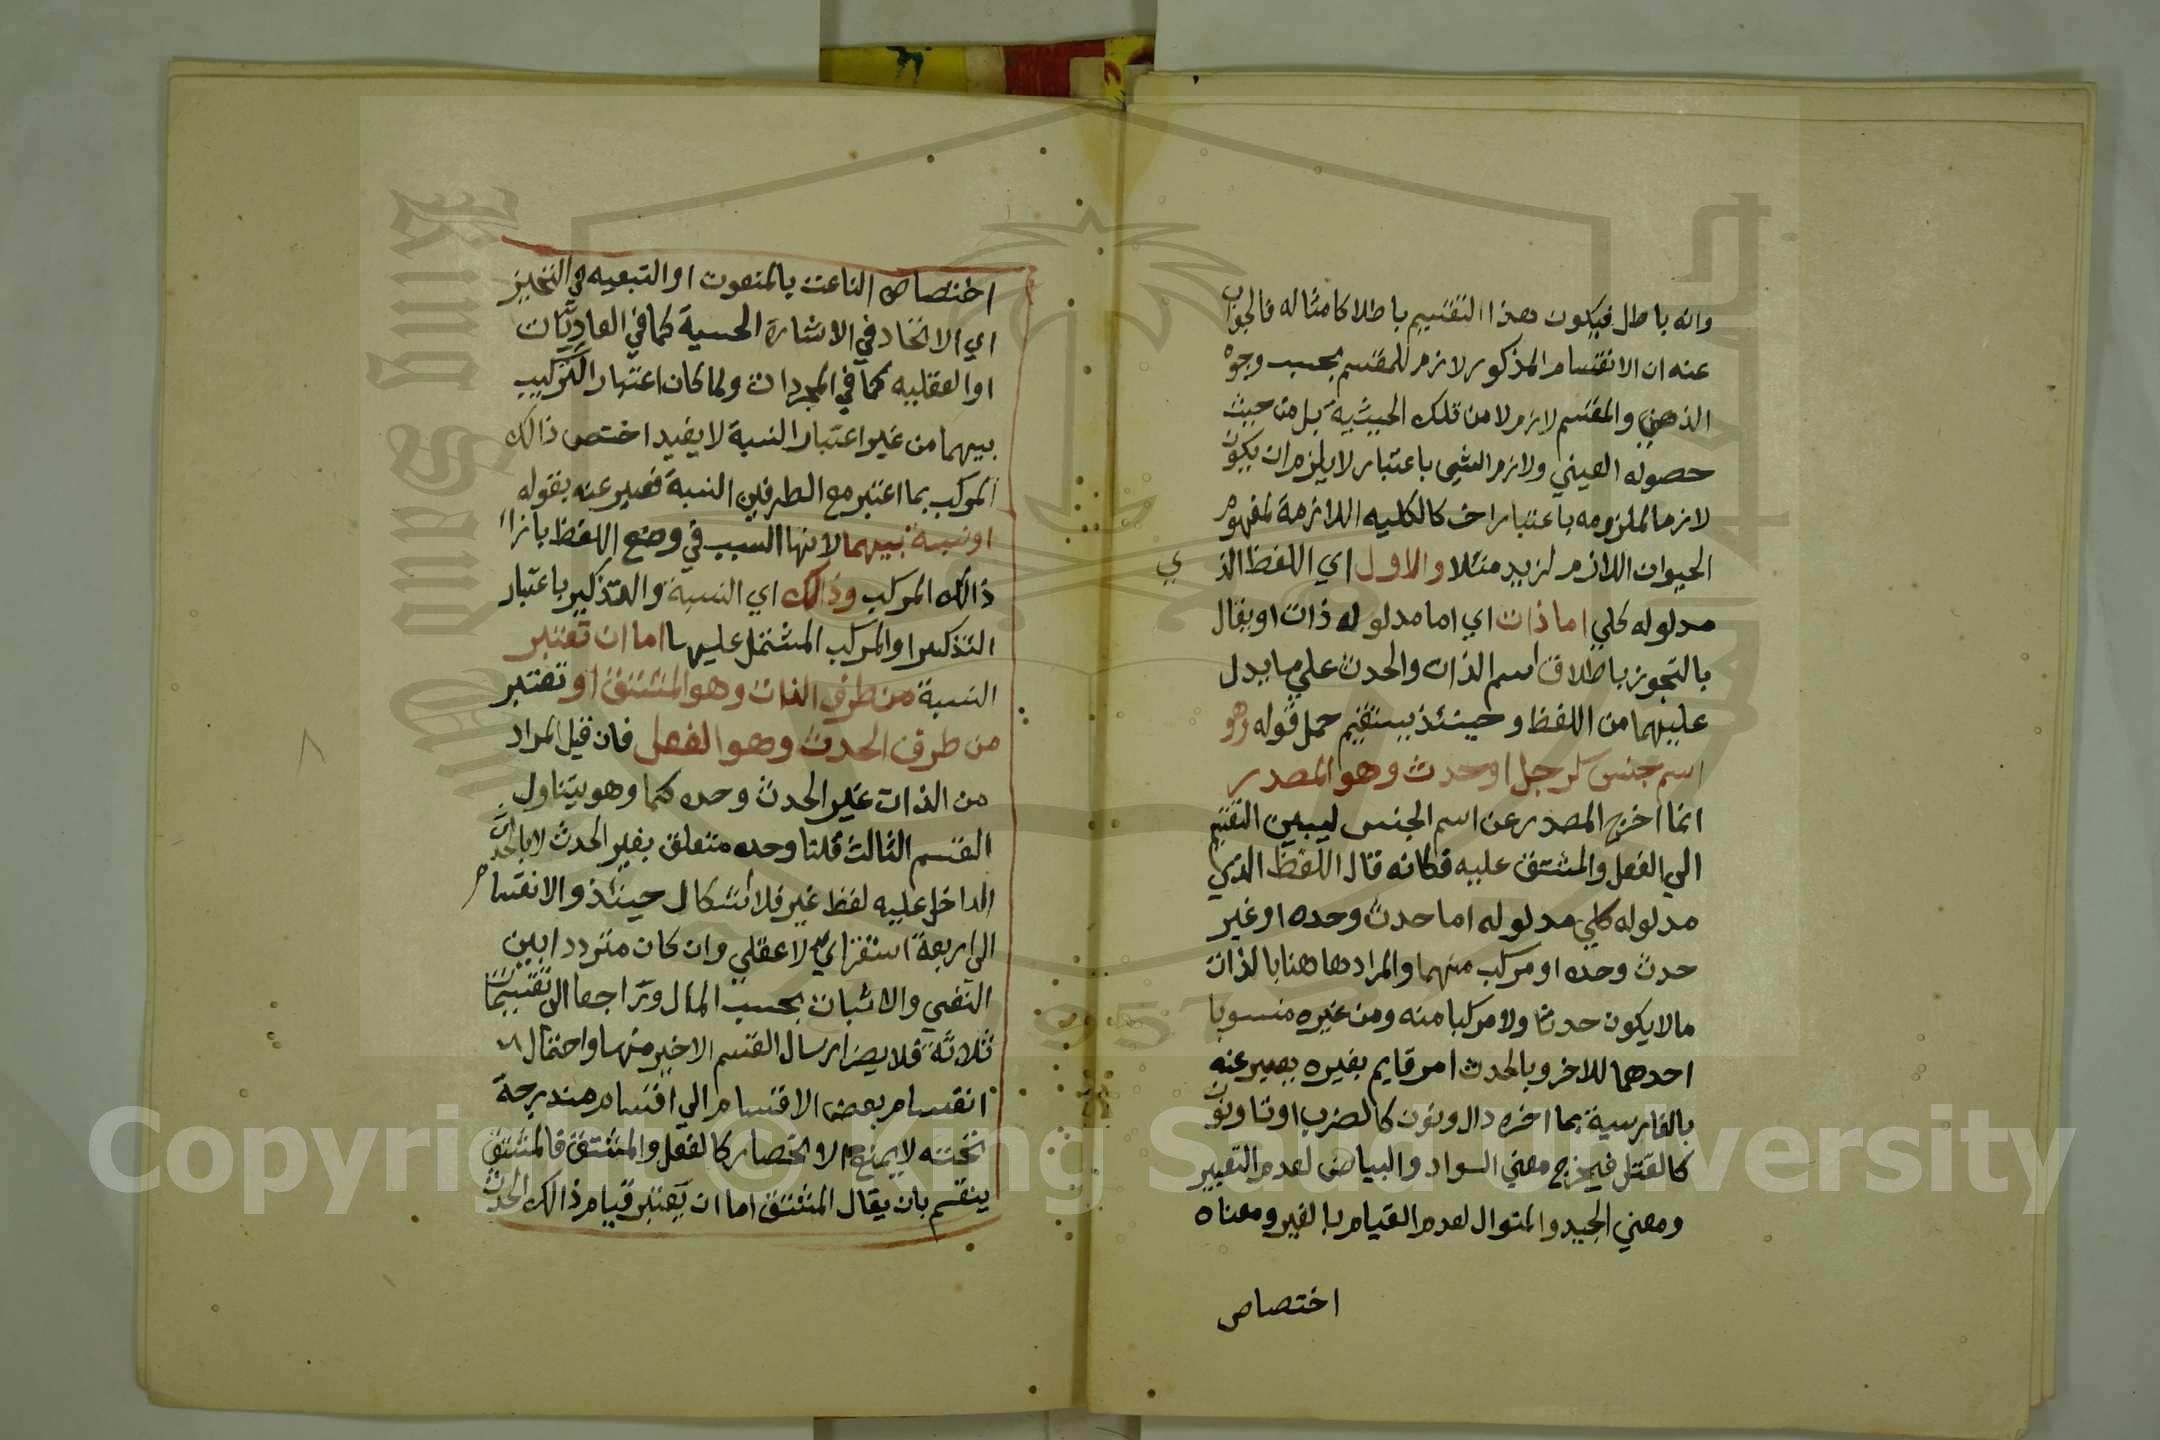 وانه باطل فيكون هذا التقسيم باطلا كامثاله فالجواب
عنه ان الانقسام المذكور لازم للمقسم بحسب وجوه
الذهني والمقسم لازم لا من تلك الحيثية بل من حيث
حصوله العيني ولازم الشي باعتبار لا يلزم ان يكون
لازما لملزومه باعتبار اخر كالكليه اللازمة لمفهوم
الحيوان اللازم لزيد مثلا والاول اي اللفظ الذي
مدلوله كلي اما ذات اي اما مدلوله ذات او يقال
بالتجوز باطلاق اسم الذات والحدث علي ما يدل
عليهما من اللفظ وحينئذ يستقيم حمل قوله وهو
اسم جنس كرجل او حدث وهو المصدر
انما اخرج المصدر عن اسم الجنس ليبين التقسيم
الي الفعل والمشتق عليه فكانه قال اللفظ الذي
مدلوله كلي مدلوله اما حدث وحده او غير
حدث وحده او مركب منهما والمراد هاهنا بالذات
ما لا يكون حدثا ولا مركبا منه ومن غيره منسوبا
احدهما للاخر وبالحدث امر قايم بغيره يعبر عنه
بالفارسية بما اخره دال ونون كالضرب او تا ونون
كالقتل فيخرج معني السواد والبياض لعدم التعبير
ومعني الجيد والمتوال لعدم القيام بالغير ومعناه
اختصاص
اختصاص الناعت بالمنعوت او التبعيه في التحيز
اي الاتحاد في الاشارة الحسية كما في العاديات
او العقليه كما في المجردات ولما كان اعتبار التركيب
بيهما من غير اعتبار النسبة لا يفيد اختص ذالك
المركب بما اعتبر مع الطرفين النسبة فعبر عنه بقوله
او نسبة بيهما لانها السبب في وضع اللفظ بازاء
ذالك المركب وذالك اي النسبة والتذكير باعتبار
التذكير او المركب المشتمل عليها اما ان تعتبر
النسبة من طرف الذات وهو المشتق او تعتبر
من طرف الحدث وهو الفعل فان قيل المراد
من الذات غير الحدث وحده كما وهو يتناول
القسم الثالث قلنا وحده متعلق بغير الحدث لا بالحدث
الداخل عليه لفظ غير فلا اشكال حينئذ والانقسام
الي اربعة استقراي لا عقلي وان كان مترددا بين
النفي والاثبات بحسب المال وتراجعا الي تقسيمات
ثلاثة فلا يضر ارسال القسم الاخير منها واحتمال
انقسام بعض الاقسام الي اقسام مندرجة
تحته لا يمنع الانحصار كالفعل والمشتق فالمشتق
ينقسم بان يقال المشتق اما ان يعتبر قيام ذالك الحدث
٨
Copyright © King Saud University
1957